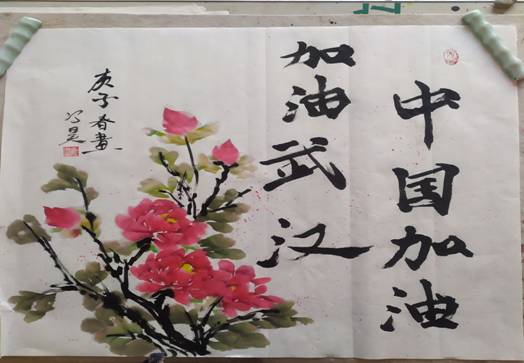 中国加油
加油武汉
庚子春画